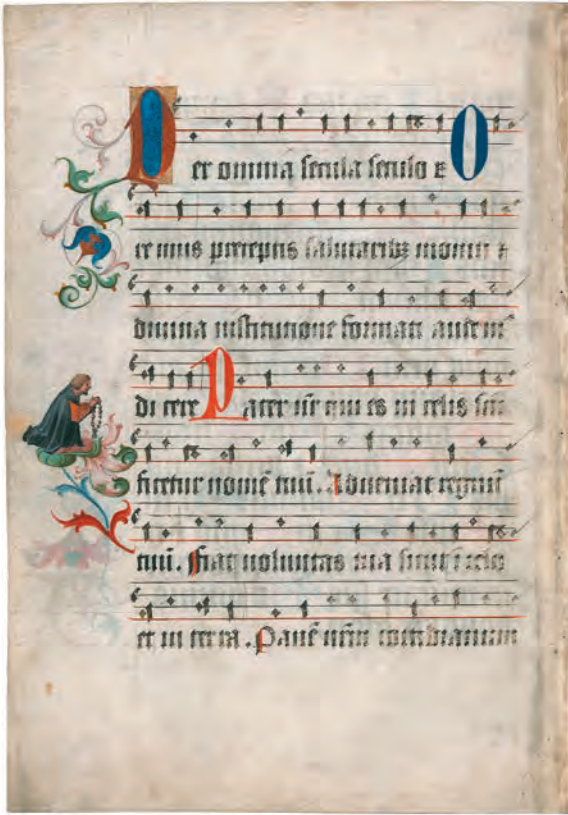 Per omnia secula seculo ꝝ O
re mus preceptis salutaribꝫ moniti ⁊
diuina institutione formati audem
di cere Pater nr̄ qui es in celis san
ficetur nomē tuū. Adueniat regnū
tuū. Fiat voluntas tua sicut ī celo
et in terra. Panē nr̄m cotidianum